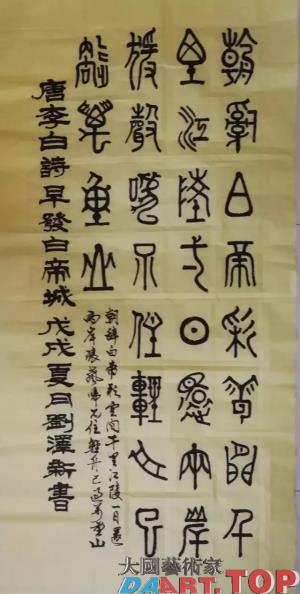 朝辭白帝彩雲間千
里江陵一日還兩岸
猿聲啼不住輕舟已
過萬重山
朝辭白帝彩雲間千里江陵一日還
兩岸猿聲啼不住輕舟已過萬重山
唐李白詩早發白帝城戊戌夏日劉澤新書
大國藝術家
DAART.TOP